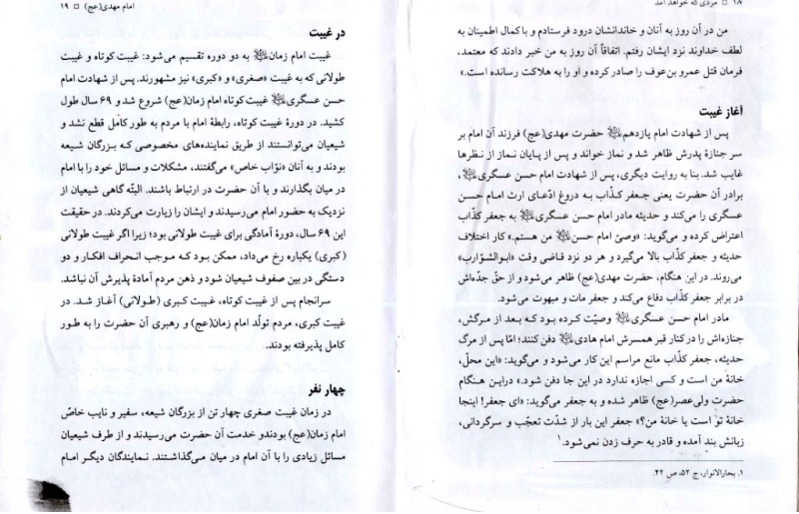 ۱۸ □ مردی که خواهد آمد
من در آن روز به آنان و خاندانشان درود فرستادم و با کمال اطمینان به
لطف خداوند نزد ایشان رفتم. اتفاقاً آن روز به من خبر دادند که معتمد،
فرمان قتل عمرو بن‌عوف را صادر کرده و او را به هلاکت رسانده است.»
آغاز غیبت
پس از شهادت امام یازدهم حضرت مهدی(عج) فرزند آن امام بر
سر جنازهٔ پدرش ظاهر شد و نماز خواند و پس از پایان نماز از نظرها
غایب شد. بنا به روایت دیگری، پس از شهادت امام حسن عسکری،
برادر آن حضرت یعنی جعفر کذّاب به دروغ ادّعای ارث امام حسن
عسگری را می‌کند و حدیثه مادر امام حسن عسگری به جعفر کذّاب
اعتراض کرده و می‌گوید: «وصیّ امام حسن من هستم.» کار اختلاف
حدیثه و جعفر کذّاب بالا می‌گیرد و هر دو نزد قاضی وقت «ابوالشّوارب»
می‌روند. در این هنگام، حضرت مهدی(عج) ظاهر می‌شود و از حقّ جدّه‌اش
در برابر جعفر کذّاب دفاع می‌کند و جعفر مات و مبهوت می‌شود.
مادر امام حسن عسگری وصیّت کرده بود که بعد از مرگش،
جنازه‌اش را در کنار قبر همسرش امام هادی دفن کنند؛ امّا پس از مرگ
حدیثه، جعفر کذّاب مانع مراسم این کار می‌شود و می‌گوید: «این محل،
خانهٔ من است و کسی اجازه ندارد در این جا دفن شود.» دراین هنگام
حضرت ولی‌عصر(عج) ظاهر شده و به جعفر می‌گوید: «ای جعفر! اینجا
خانهٔ تو است یا خانهٔ من؟» جعفر این بار از شدّت تعجّب و سرگردانی،
زبانش بند آمده و قادر به حرف زدن نمی‌شود.۱
۱. بحارالانوار، ج ۵۲، ص ۴۲.
امام مهدی(عج) □ ۱۹
در غیبت
غیبت امام زمان به دو دوره تقسیم می‌شود: غیبت کوتاه و غیبت
طولانی که به غیبت «صغری» و «کبری» نیز مشهورند. پس از شهادت امام
حسن عسگری غیبت کوتاه امام زمان(عج) شروع شد و ۶۹ سال طول
کشید. در دورهٔ غیبت کوتاه، رابطهٔ امام با مردم به طور کامل قطع نشد و
شیعیان می‌توانستند از طریق نماینده‌های مخصوصی که بزرگان شیعه
بودند و به آنان «نوّاب خاص» می‌گفتند، مشکلات و مسائل خود را با امام
در میان بگذارند و با آن حضرت در ارتباط باشند. البتّه گاهی شیعیان از
نزدیک به حضور امام می‌رسیدند و ایشان را زیارت می‌کردند. در حقیقت
این ۶۹ سال، دورهٔ آمادگی برای غیبت طولانی بود؛ زیرا اگر غیبت طولانی
(کبری) یکباره رخ می‌داد، ممکن بود که موجب انحراف افکار و دو
دستگی در بین صفوف شیعیان شود و ذهن مردم آمادهٔ پذیرش آن نباشد.
سرانجام پس از غیبت کوتاه، غیبت کبری (طولانی) آغاز شد. در
غیبت کبری، مردم تولّد امام زمان(عج) و رهبری آن حضرت را به طور
کامل پذیرفته بودند.
چهار نفر
در زمان غیبت صغری چهار تن از بزرگان شیعه، سفیر و نایب خاصّ
امام زمان(عج) بودندو خدمت آن حضرت می‌رسیدند و از طرف شیعیان
مسائل زیادی را با آن امام در میان می‌گذاشتند. نمایندگان دیگر امام